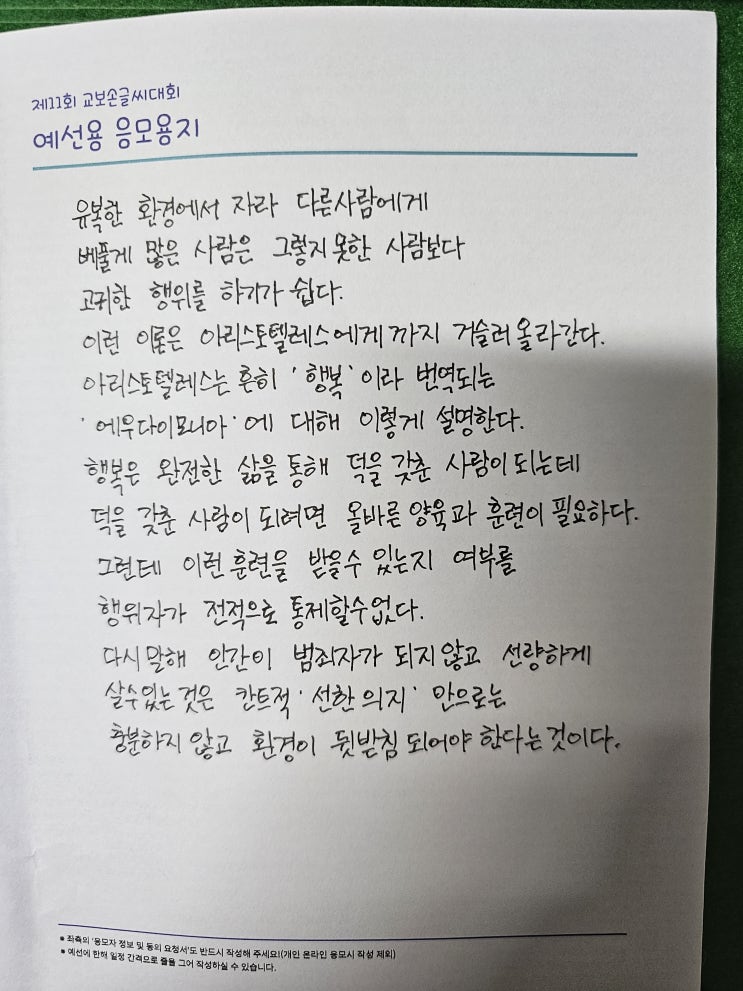 제11회 교보손글씨대회
예선용 응모용지
유복한 환경에서 자라 다른사람에게
베풀게 많은 사람은 그렇지 못한 사람보다
고귀한 행위를 하기가 쉽다.
이런 이론은 아리스토텔레스에게까지 거슬러 올라간다.
아리스토텔레스는 흔히 '행복'이라 번역되는
'에우다이모니아'에 대해 이렇게 설명한다.
행복은 완전한 삶을 통해 덕을 갖춘 사람이 되는데
덕을 갖춘 사람이 되려면 올바른 양육과 훈련이 필요하다.
그런데 이런 훈련을 받을수 있는지 여부를
행위자가 전적으로 통제할수없다.
다시말해 인간이 범죄자가 되지 않고 선량하게
살수있는 것은 칸트적 '선한 의지' 만으로는
충분하지 않고 환경이 뒷받침 되어야 한다는 것이다.
● 좌측의 '응모자 정보 및 동의 요청서'도 반드시 작성해 주세요!(개인 온라인 응모시 작성 제외)
● 예선에 한해 일정 간격으로 줄을 그어 작성하실 수 있습니다.